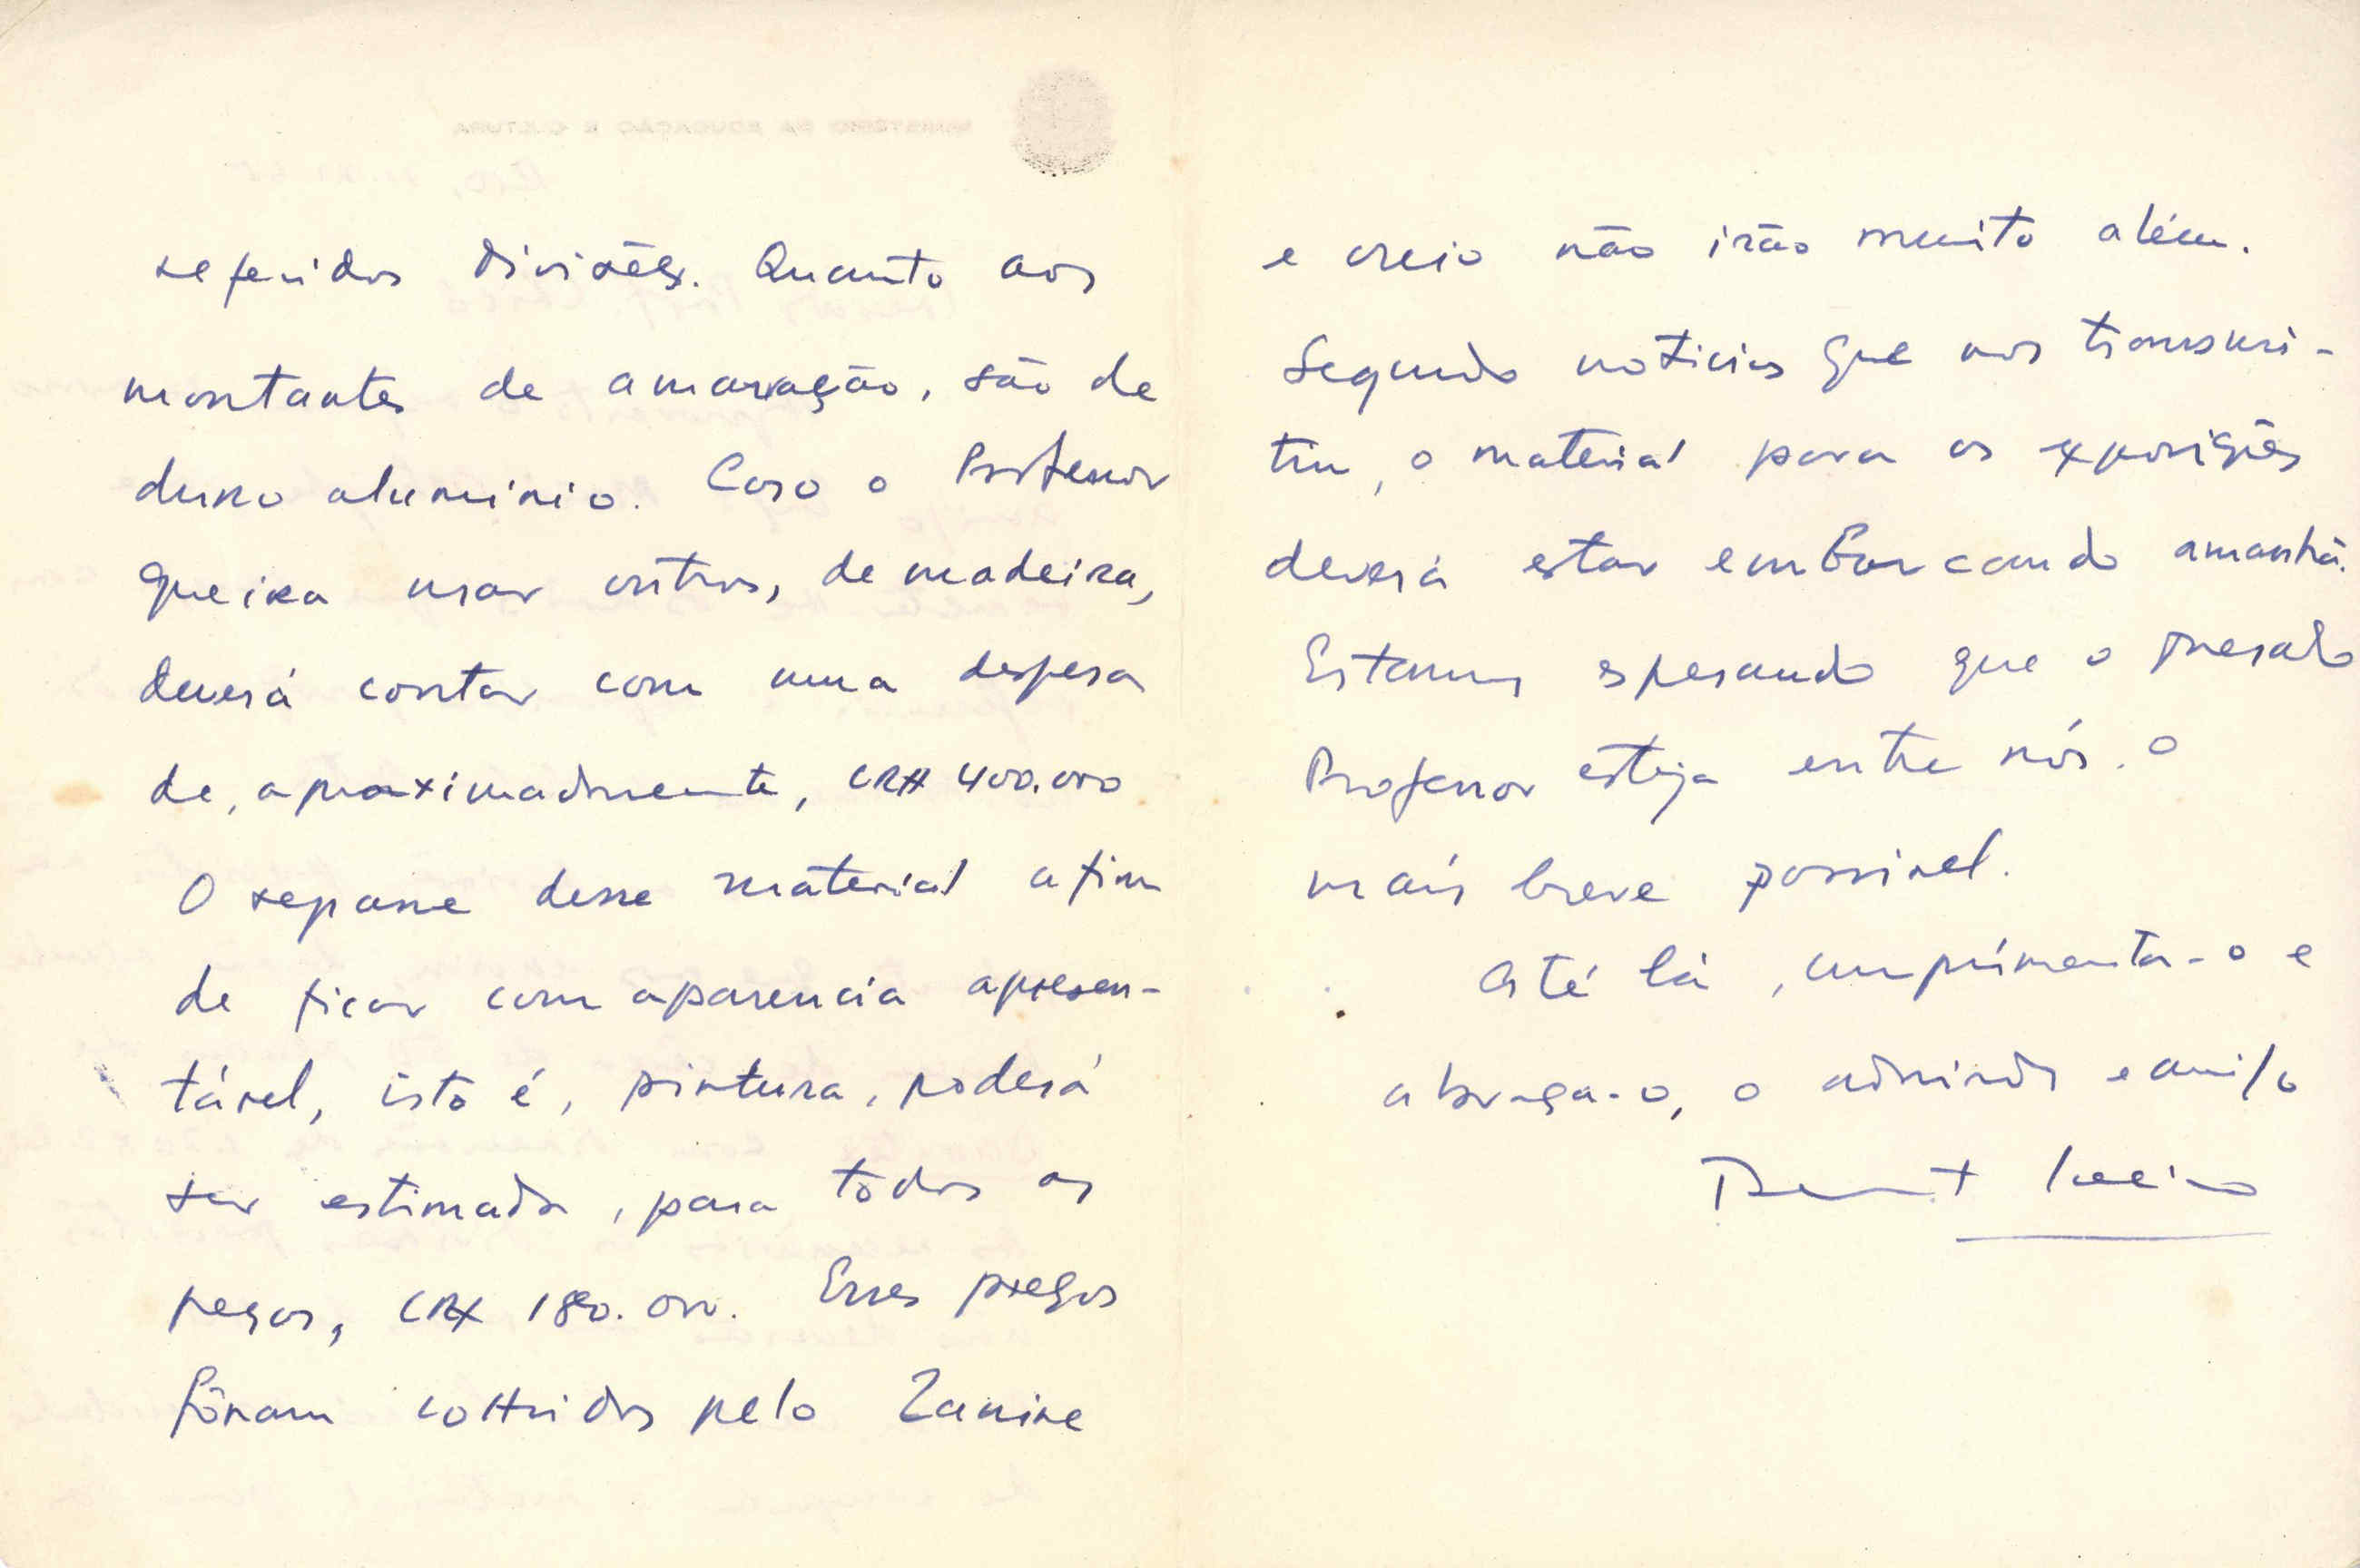 referidas divisões. Quanto aos
montantes de amarração, são de
duro aluminio. Caso o Professor
queira usar outros, de madeira,
deverá contar com uma despesa
de, aproximadmente, CR$ 400.000
O repasse desse material afim
de ficar com aparencia apresen-
tável, isto é, pintura, poderá
ser estimada, para todos as
peças, CR$ 180.000. Esses preços
fôram colhidos pelo Zanine
e creio não irão muito além.
Segundo noticias que nos transmi-
tiu, o material para as exposições
deverá estar embarcando amanhã.
Estamos esperando que o presado
Professor esteja entre nós. o
mais breve possivel.
Até lá, cumprimenta-o e
abraça-o, o admirador e amigo